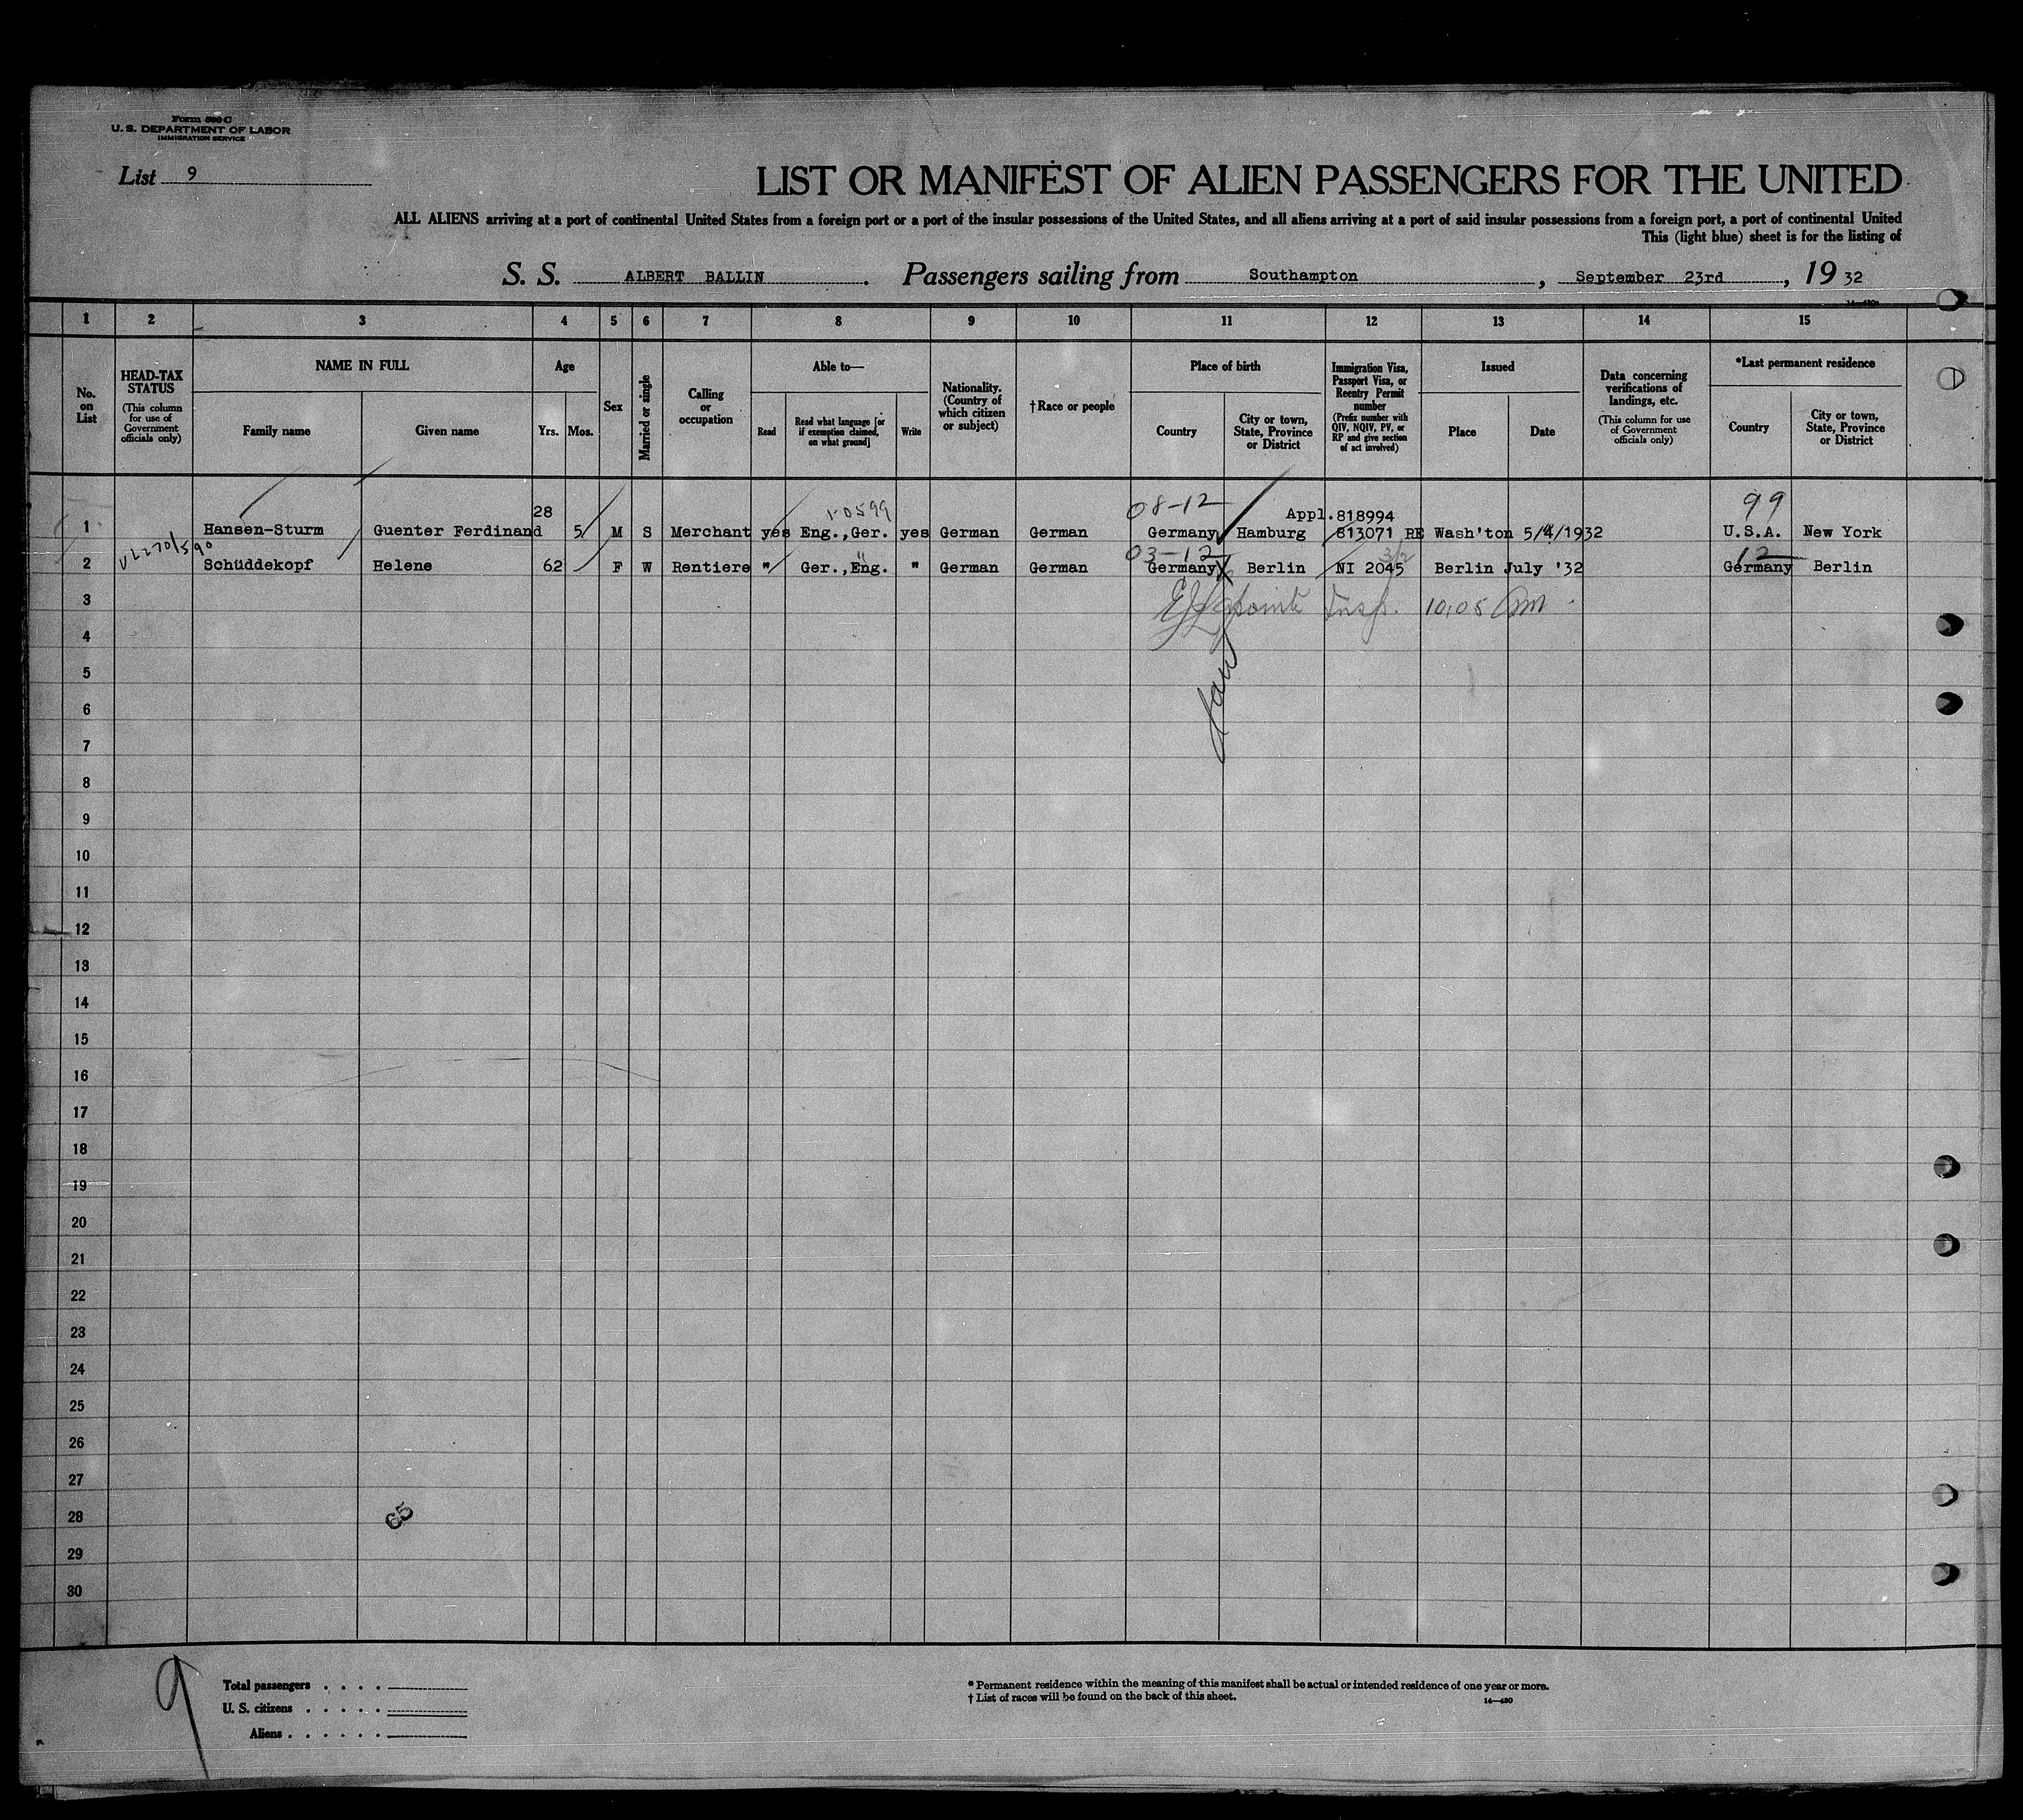 Form 500 C
U. S. DEPARTMENT OF LABOR
IMMIGRATION SERVICE
List 9
LIST OR MANIFEST OF ALIEN PASSENGERS FOR THE UNITED
ALL ALIENS arriving at a port of continental United States from a foreign port or a port of the insular possessions of the United States, and all aliens arriving at a port of said insular possessions from a foreign port, a port of continental United
This (light blue) sheet is for the listing of
S. S. ALBERT BALLIN. Passengers sailing from Southampton, September 23rd, 19 32
1 2 3 4 5 6 7 8 9 10 11 12 13 14 15
No. on List
HEAD-TAX STATUS
(This column for use of Government officials only)
NAME IN FULL
Family name
Given name
Age
Yrs.
Mos.
Sex
Married or single
Calling or occupation
Able to—
Read
Read what language [or if exemption claimed, on what ground]
Write
Nationality. (Country of which citizen or subject)
†Race or people
Place of birth
Country
City or town, State, Province or District
Immigration Visa, Passport Visa, or Reentry Permit number
(Prefix number with QIV, NQIV, PV, or RP and give section of act involved)
Issued
Place
Date
Data concerning verifications of landings, etc.
(This column for use of Government officials only)
*Last permanent residence
Country
City or town, State, Province or District
08-12 99
28 1-0599 Appl.818994
1 Hansen-Sturm Guenter Ferdinand 5 M S Merchant yes Eng.,Ger. yes German German Germany Hamburg 813071 RE Wash'ton 5/4/1932 U.S.A. New York
03-12 3/2 12
2 Schüddekopf Helene 62 F W Rentiere " Ger.,Eng. " German German Germany Berlin NI 2045 Berlin July '32 Germany Berlin
3 Insp. 10:05 Am
4
5
6
7
8
9
10
11
12
13
14
15
16
17
18
19
20
21
22
23
24
25
26
27
28
65
29
30
9
Total passengers . . . .
U. S. citizens . . . . .
Aliens . . . . . .
* Permanent residence within the meaning of this manifest shall be actual or intended residence of one year or more.
† List of races will be found on the back of this sheet.
14—430